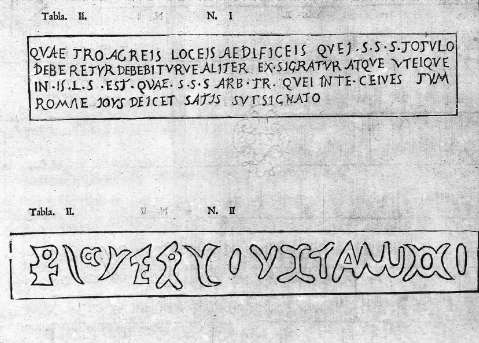 Tabla. II. N. I
QVAE TRO AGREIS LOCEIS AEDIFICEIS QVEI·S·S·S·TOTVLO
DEBERETVR DEBEBITVRVE ALITER EX·SIGRATVR ATQVE VTEIQVE
IN·IS·L·S·EST·QVAE·S·S·S ARB·TR·QVEI INTE·CEIVES TVM
ROMAE IOVS DEICET SATIS SVTSIGNATO
Tabla. II. N. II